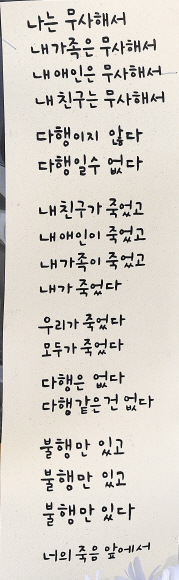 나는 무사해서
내 가족은 무사해서
내 애인은 무사해서
내 친구는 무사해서
다행이지 않다
다행일수 없다
내 친구가 죽었고
내 애인이 죽었고
내 가족이 죽었고
내가 죽었다
우리가 죽었다
모두가 죽었다
다행은 없다
다행같은건 없다
불행만 있고
불행만 있고
불행만 있다
너의 죽음 앞에서